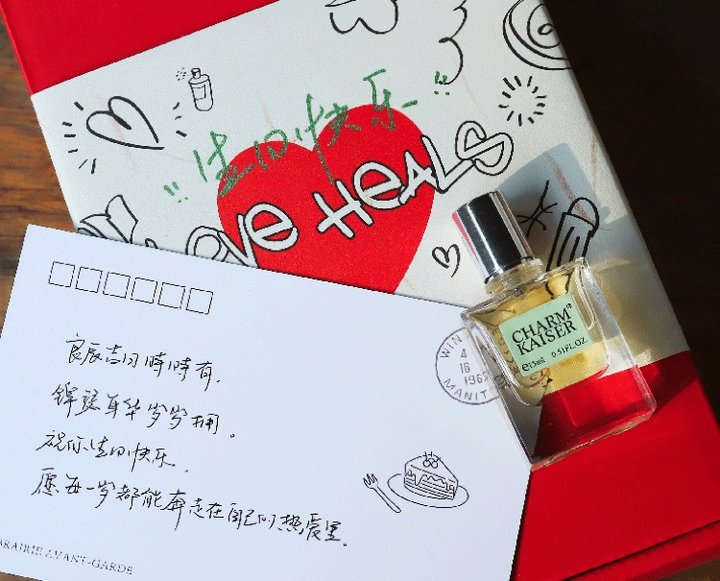 "生日快乐"
LOVE HEALS
CHARM
KAISER
e15ml 0.51FL.OZ
WIN
4
16
196
MANIT
良辰吉日時時有,
锦瑟年华岁岁拥。
祝你生日快乐,
愿每一岁都能奔走在自己的热爱里。
BRAIRIE AVANT-GARDE